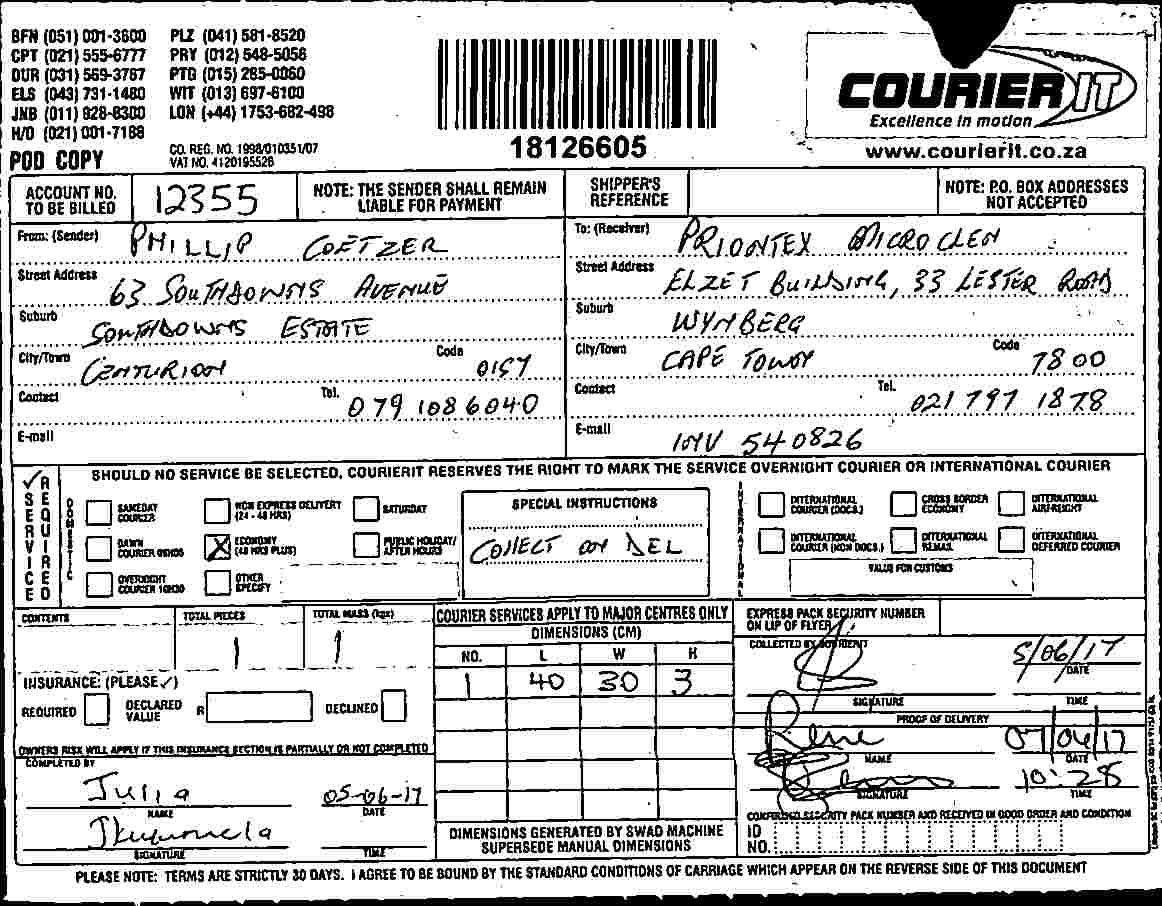 BFN (051) 001-3600 PLZ (041) 581-8520
CPT (021) 555-6777 PRY (012) 548-5058
DUR (031) 569-3767 PTG (015) 285-0060
ELS (043) 731-1480 WIT (013) 697-6100
JNB (011) 928-8300 LON (+44) 1753-682-498
H/O (021) 001-7188
POD COPY
CO. REG. NO. 1998/010351/07
VAT NO. 4120195528
18126605
COURIER IT
Excellence in motion
www.courierit.co.za
ACCOUNT NO. TO BE BILLED 12355
NOTE: THE SENDER SHALL REMAIN LIABLE FOR PAYMENT
SHIPPER'S REFERENCE
NOTE: P.O. BOX ADDRESSES NOT ACCEPTED
From: (Sender) PHILLIP COETZER
Street Address 63 SOUTHDOWNS AVENUE
Suburb SOUTHDOWNS ESTATE
City/Town CENTURION Code 0157
Contact Tel. 079 108 6040
E-mail
To: (Receiver) PRIONTEX MICROCLEN
Street Address ELZET BUILDING, 33 LESTER ROAD
Suburb WYNBERG
City/Town CAPE TOWN Code 7800
Contact Tel. 021 797 1878
E-mail INV 540826
SERVICE REQUIRED
SHOULD NO SERVICE BE SELECTED, COURIERIT RESERVES THE RIGHT TO MARK THE SERVICE OVERNIGHT COURIER OR INTERNATIONAL COURIER
DOMESTIC
SAMEDAY COURIER
NON EXPRESS DELIVERY (24 - 48 HRS)
SATURDAY
DAWN COURIER 09H00
ECONOMY (48 HRS PLUS)
PUBLIC HOLIDAY/ AFTER HOURS
OVERNIGHT COURIER 10H30
OTHER SPECIFY
SPECIAL INSTRUCTIONS
COLLECT ON DEL
INTERNATIONAL
INTERNATIONAL COURIER (DOCS.)
CROSS BORDER ECONOMY
INTERNATIONAL AIRFREIGHT
INTERNATIONAL COURIER (NON DOCS.)
INTERNATIONAL REMAIL
INTERNATIONAL DEFERRED COURIER
VALUE FOR CUSTOMS
CONTENTS
TOTAL PIECES 1
TOTAL MASS (kgs) 1
INSURANCE: (PLEASE ✓)
REQUIRED DECLARED VALUE R DECLINED
OWNERS RISK WILL APPLY IF THIS INSURANCE SECTION IS PARTIALLY OR NOT COMPLETED
COMPLETED BY
Julia 05-06-17
NAME DATE
SIGNATURE TIME
COURIER SERVICES APPLY TO MAJOR CENTRES ONLY
DIMENSIONS (CM)
NO. L W H
1 40 30 3
DIMENSIONS GENERATED BY SWAD MACHINE SUPERSEDE MANUAL DIMENSIONS
EXPRESS PACK SECURITY NUMBER ON LIP OF FLYER
COLLECTED BY COURIERIT
5/06/17
DATE
SIGNATURE TIME
PROOF OF DELIVERY
Rene 07/06/17
NAME DATE
10:28
SIGNATURE TIME
CONFIRMED SECURITY PACK NUMBER AND RECEIVED IN GOOD ORDER AND CONDITION
ID NO.
PLEASE NOTE: TERMS ARE STRICTLY 30 DAYS. I AGREE TO BE BOUND BY THE STANDARD CONDITIONS OF CARRIAGE WHICH APPEAR ON THE REVERSE SIDE OF THIS DOCUMENT